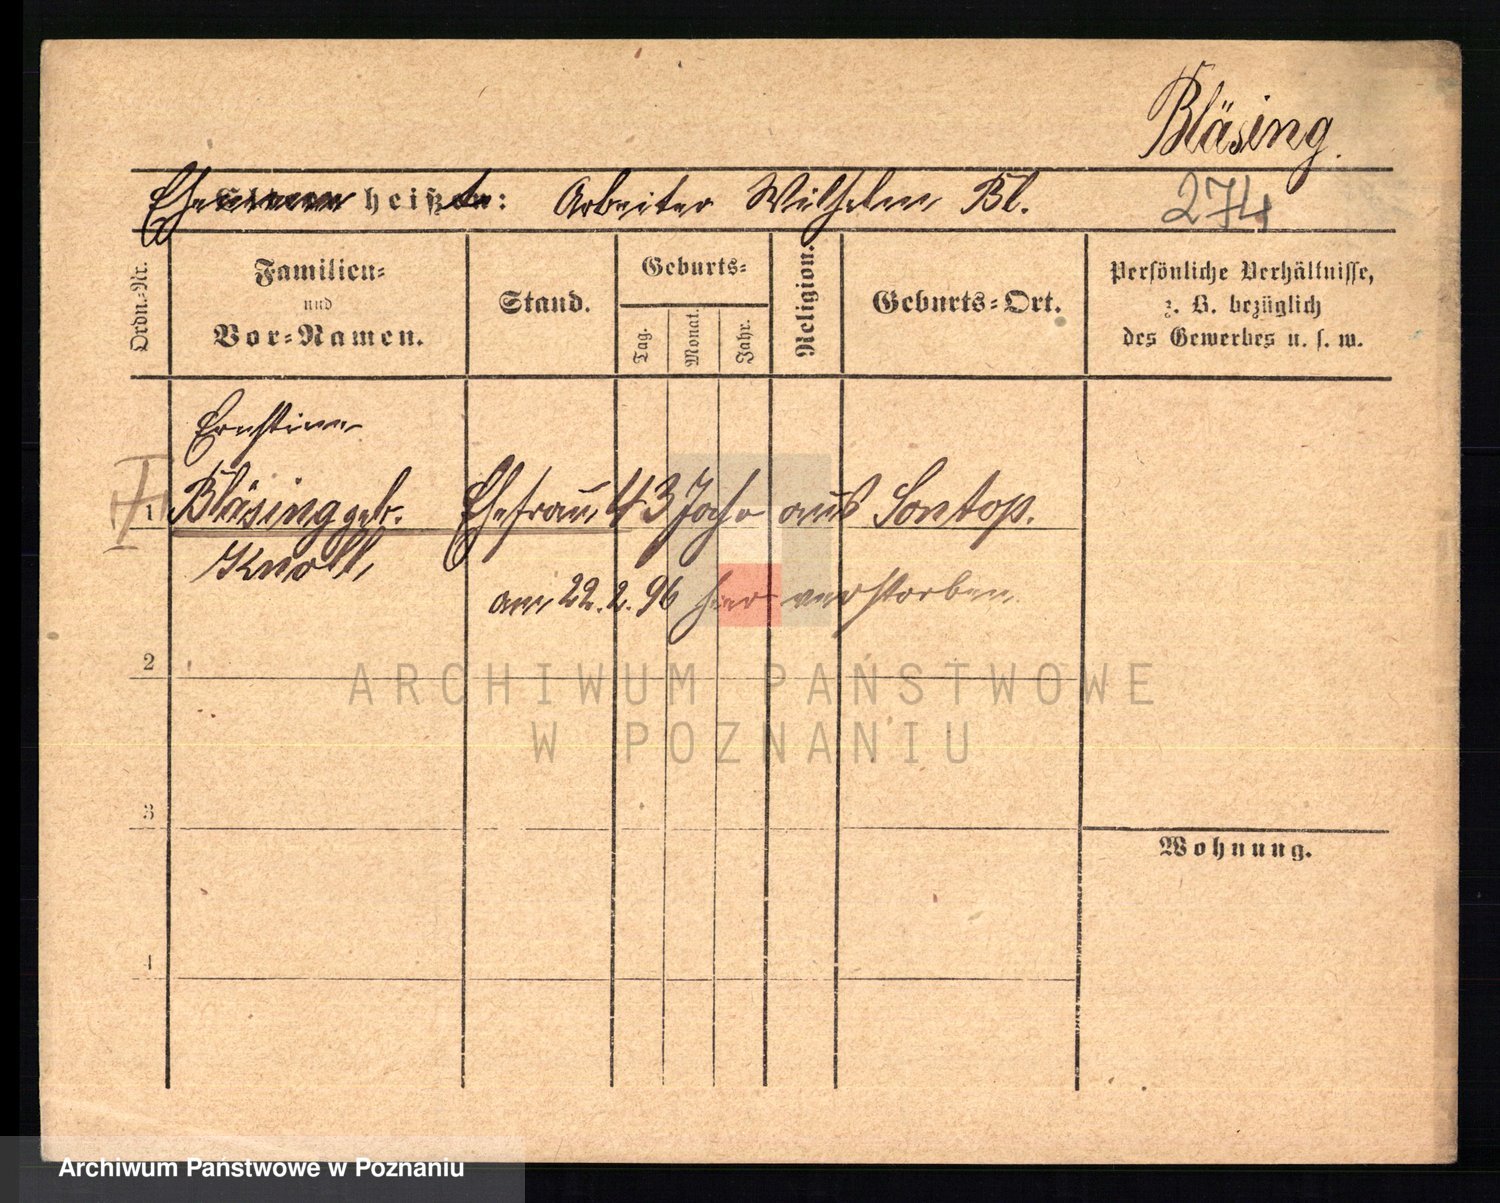 Bläsing.
Ehemann heißt: Arbeiter Wilhelm Bl.
274
Ordn.-Nr.
Familien-
und
Vor-Namen.
Stand.
Geburts-
Tag.
Monat.
Jahr.
Religion.
Geburts-Ort.
Persönliche Verhältnisse,
z. B. bezüglich
des Gewerbes u. s. w.
Ernstine
1 Bläsing geb. Ehefrau 43 Jahr aus Sontop.
Knoll
am 22.2.96 hier verstorben
2
3
4
Wohnung.
ARCHIWUM PAŃSTWOWE
W POZNANIU
Archiwum Państwowe w Poznaniu